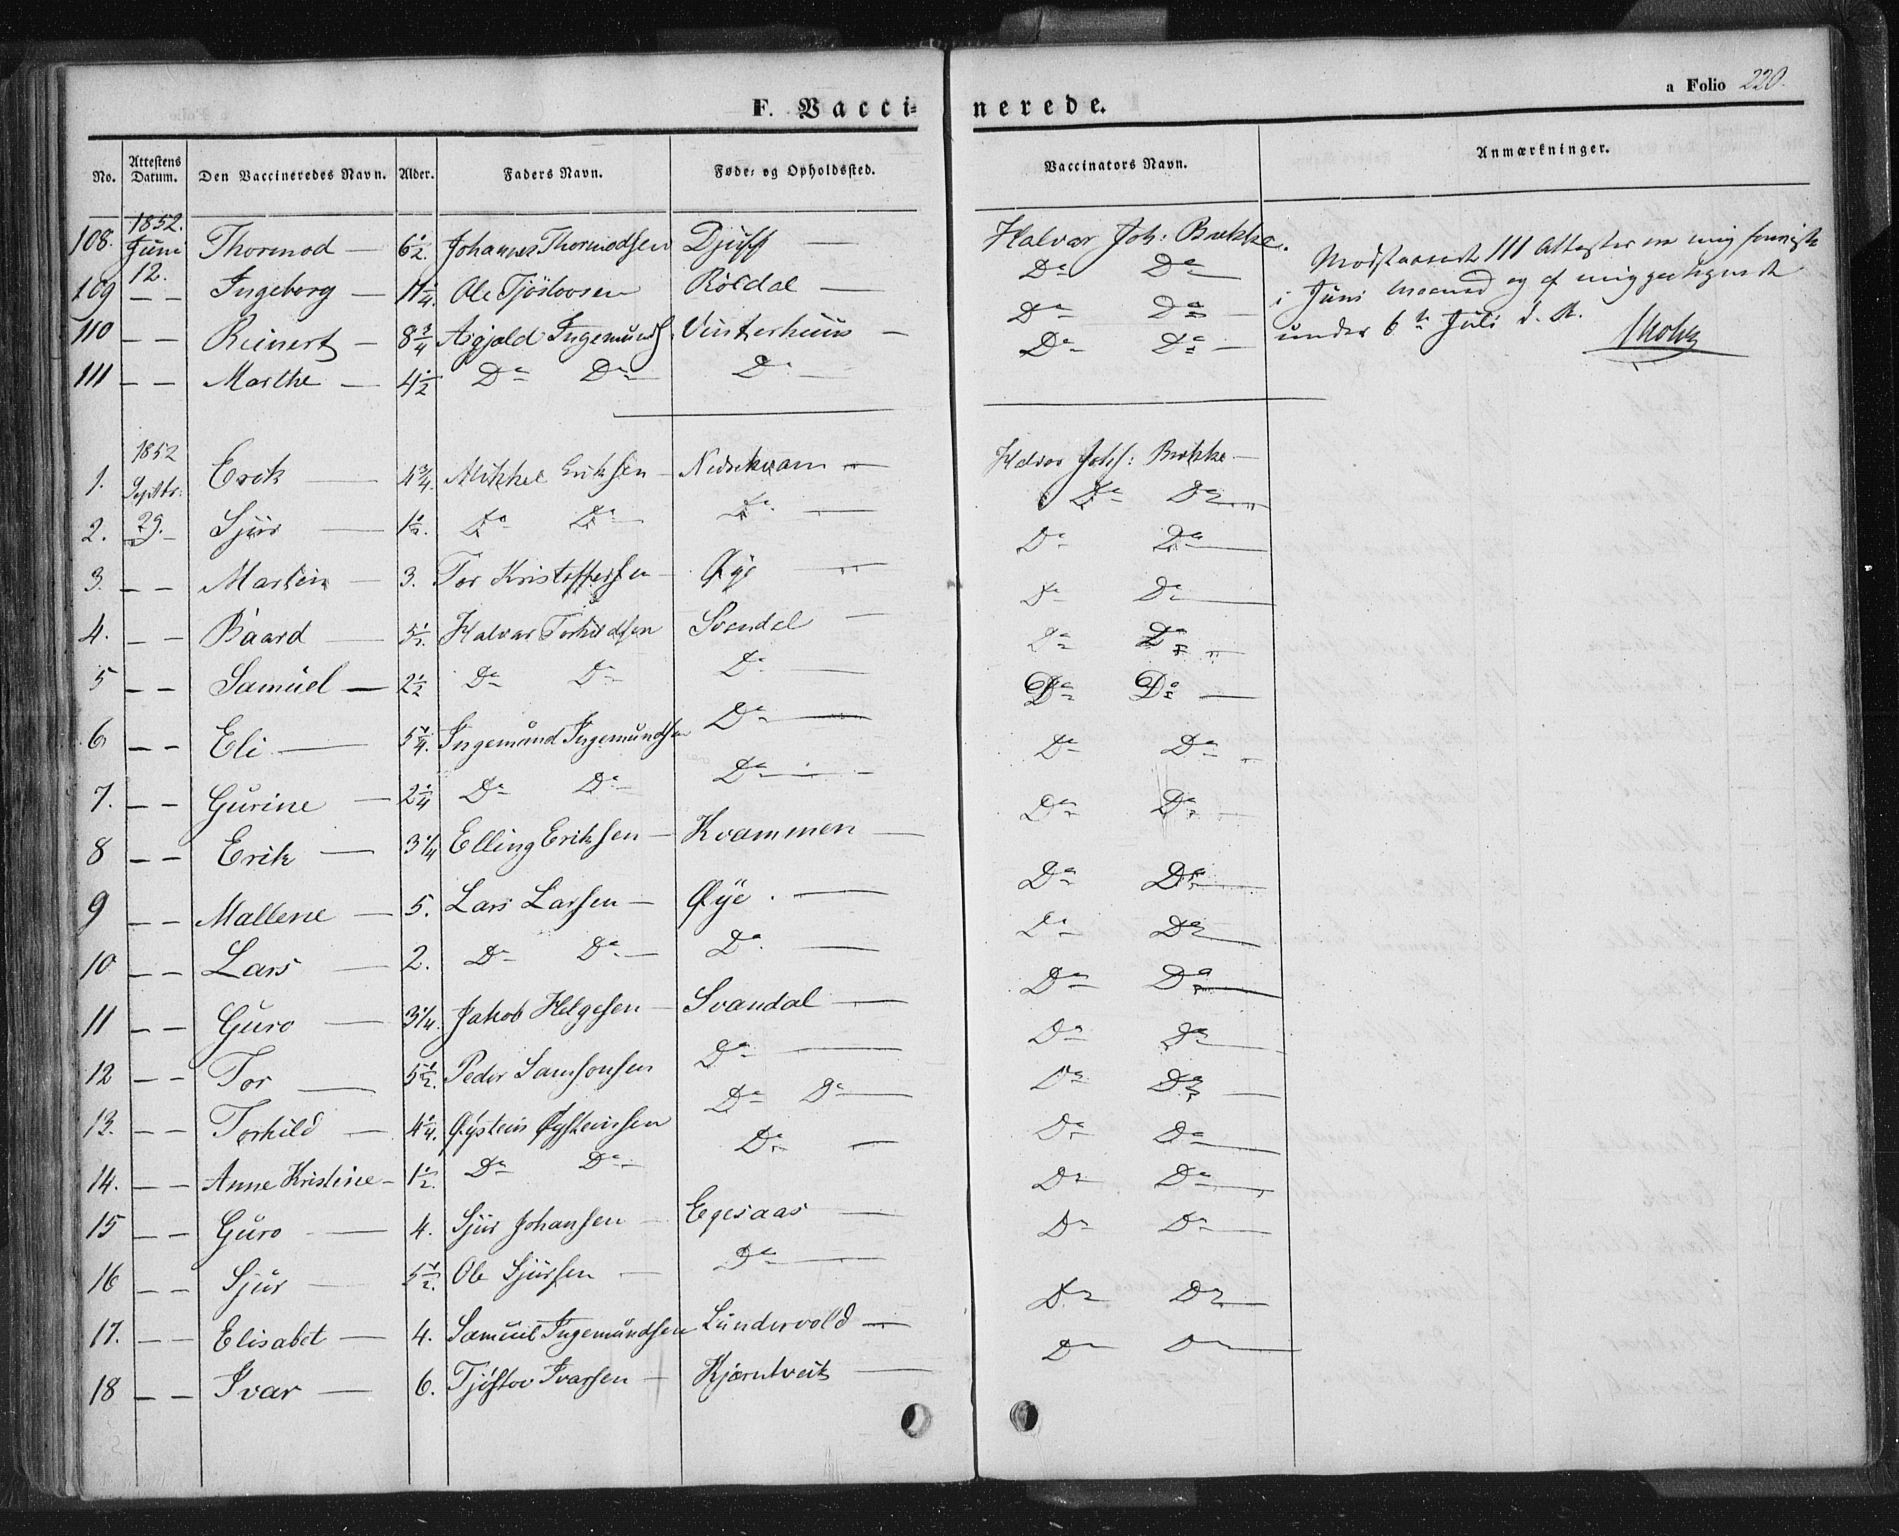 a Folio 220.
F. Vaccinerede.
No. Attestens Datum. Den Vaccineredes Navn. Alder. Faders Navn. Føde- og Opholdssted. Vaccinators Navn. Anmærkninger.
108. 1852. Juni 12. Thormod — 6½. Johannes Thormodsen Djuff — Halvar Joh: Brekke.
109 — — Ingeborg — 11¼. Ole Tjöstovsen Röldal — Do Do
110 — — Reinert — 8¾ Asgjald Ingemunds. Vinterhuus — Do Do —
111 — — Marthe — 4½ Do Do — Do — Do Do —
111 Attester
i Juni Maaned og af mig
under 6te Juli d. A.
1. 1852 Septbr. 29. Erik — 4¾. Mikkel Eriksen — Nedrekvam — Halvar Johs: Brekke —
2. Sjur — 1½. Do Do — Do — Do Do
3. — — Martin — 3. Tor Kristoffersen — Øye — Do Do —
4. — — Baard — 5½. Halvar Torkildsen Svandal — Do Do —
5 — — Samuel — 2½ Do Do Do — Do Do
6 — — Eli — 5¼. Ingemund Ingemundsen Do — Do Do —
7. — — Gurine — 2¼ Do Do — Do — Do Do
8 — — Erik — 3¼ Elling Eriksen — Kvammen — Do Do
9 — — Mallene — 5. Lars Larsen — Øye — Do Do —
10 — — Lars — 2. Do Do — Do — Do Do —
11 — — Guro — 3¼. Jakob Helgesen — Svandal — Do Do —
12 — — Tor — 5½. Peder Samsonsen Do — Do Do —
13. — — Torkild — 4¼. Øystein Øysteinsen Do Do — Do Do —
14. — — Anne Kristine — 1½. Do Do — Do — Do Do —
15 — — Guro — 4. Sjur Johansen — Egesaas — Do Do —
16 — — Sjur — 5½. Ole Sjursen — Do — Do Do —
17. — — Elisabet — 4. Samuel Ingemundsen Lundervold — Do Do —
18 — — Ivar — 6. Tjöstov Ivarsen — Kjærntveit — Do Do —